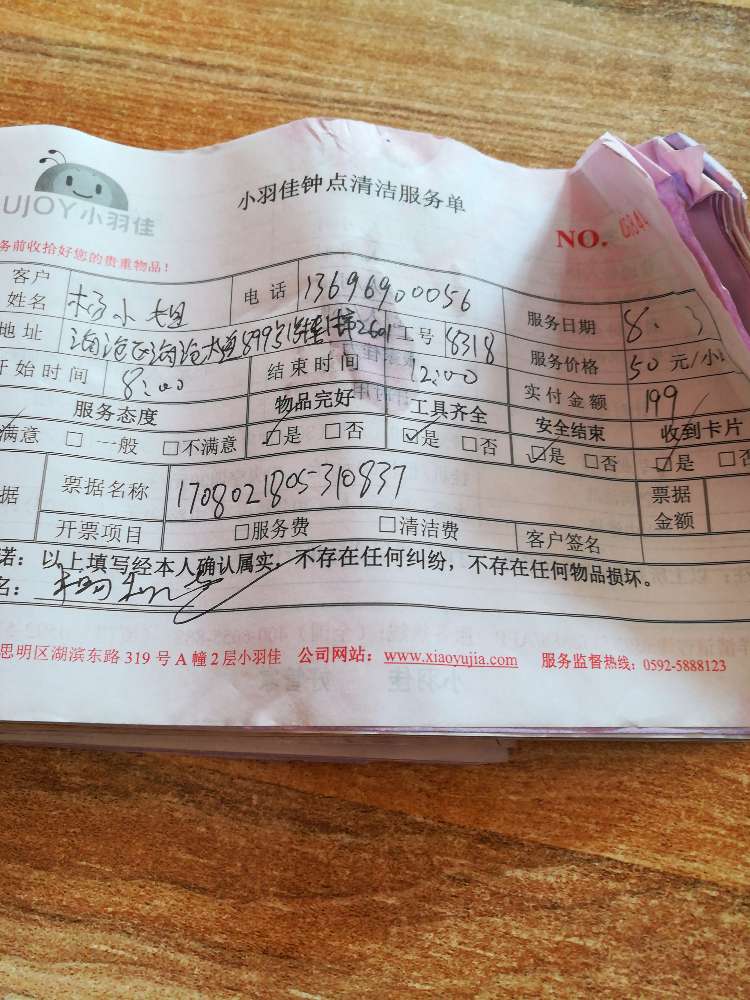 UJOY小羽佳
小羽佳钟点清洁服务单
NO.
务前收拾好您的贵重物品！
客户姓名 杨小姐 电话 13696900056 服务日期 8.3
地址 海沧区海沧大道899 2601 工号 8318 服务价格 50元/小
开始时间 8:00 结束时间 12:00 实付金额 199
服务态度 物品完好 工具齐全 安全结束 收到卡片
满意 □一般 □不满意 ☑是 □否 ☑是 □否 ☑是 □否 ☑是 □否
据 票据名称 1708021805310837 票据金额
开票项目 □服务费 □清洁费 客户签名
诺：以上填写经本人确认属实，不存在任何纠纷，不存在任何物品损坏。
名：
思明区湖滨东路319号A幢2层小羽佳 公司网站：www.xiaoyujia.com 服务监督热线：0592-5888123